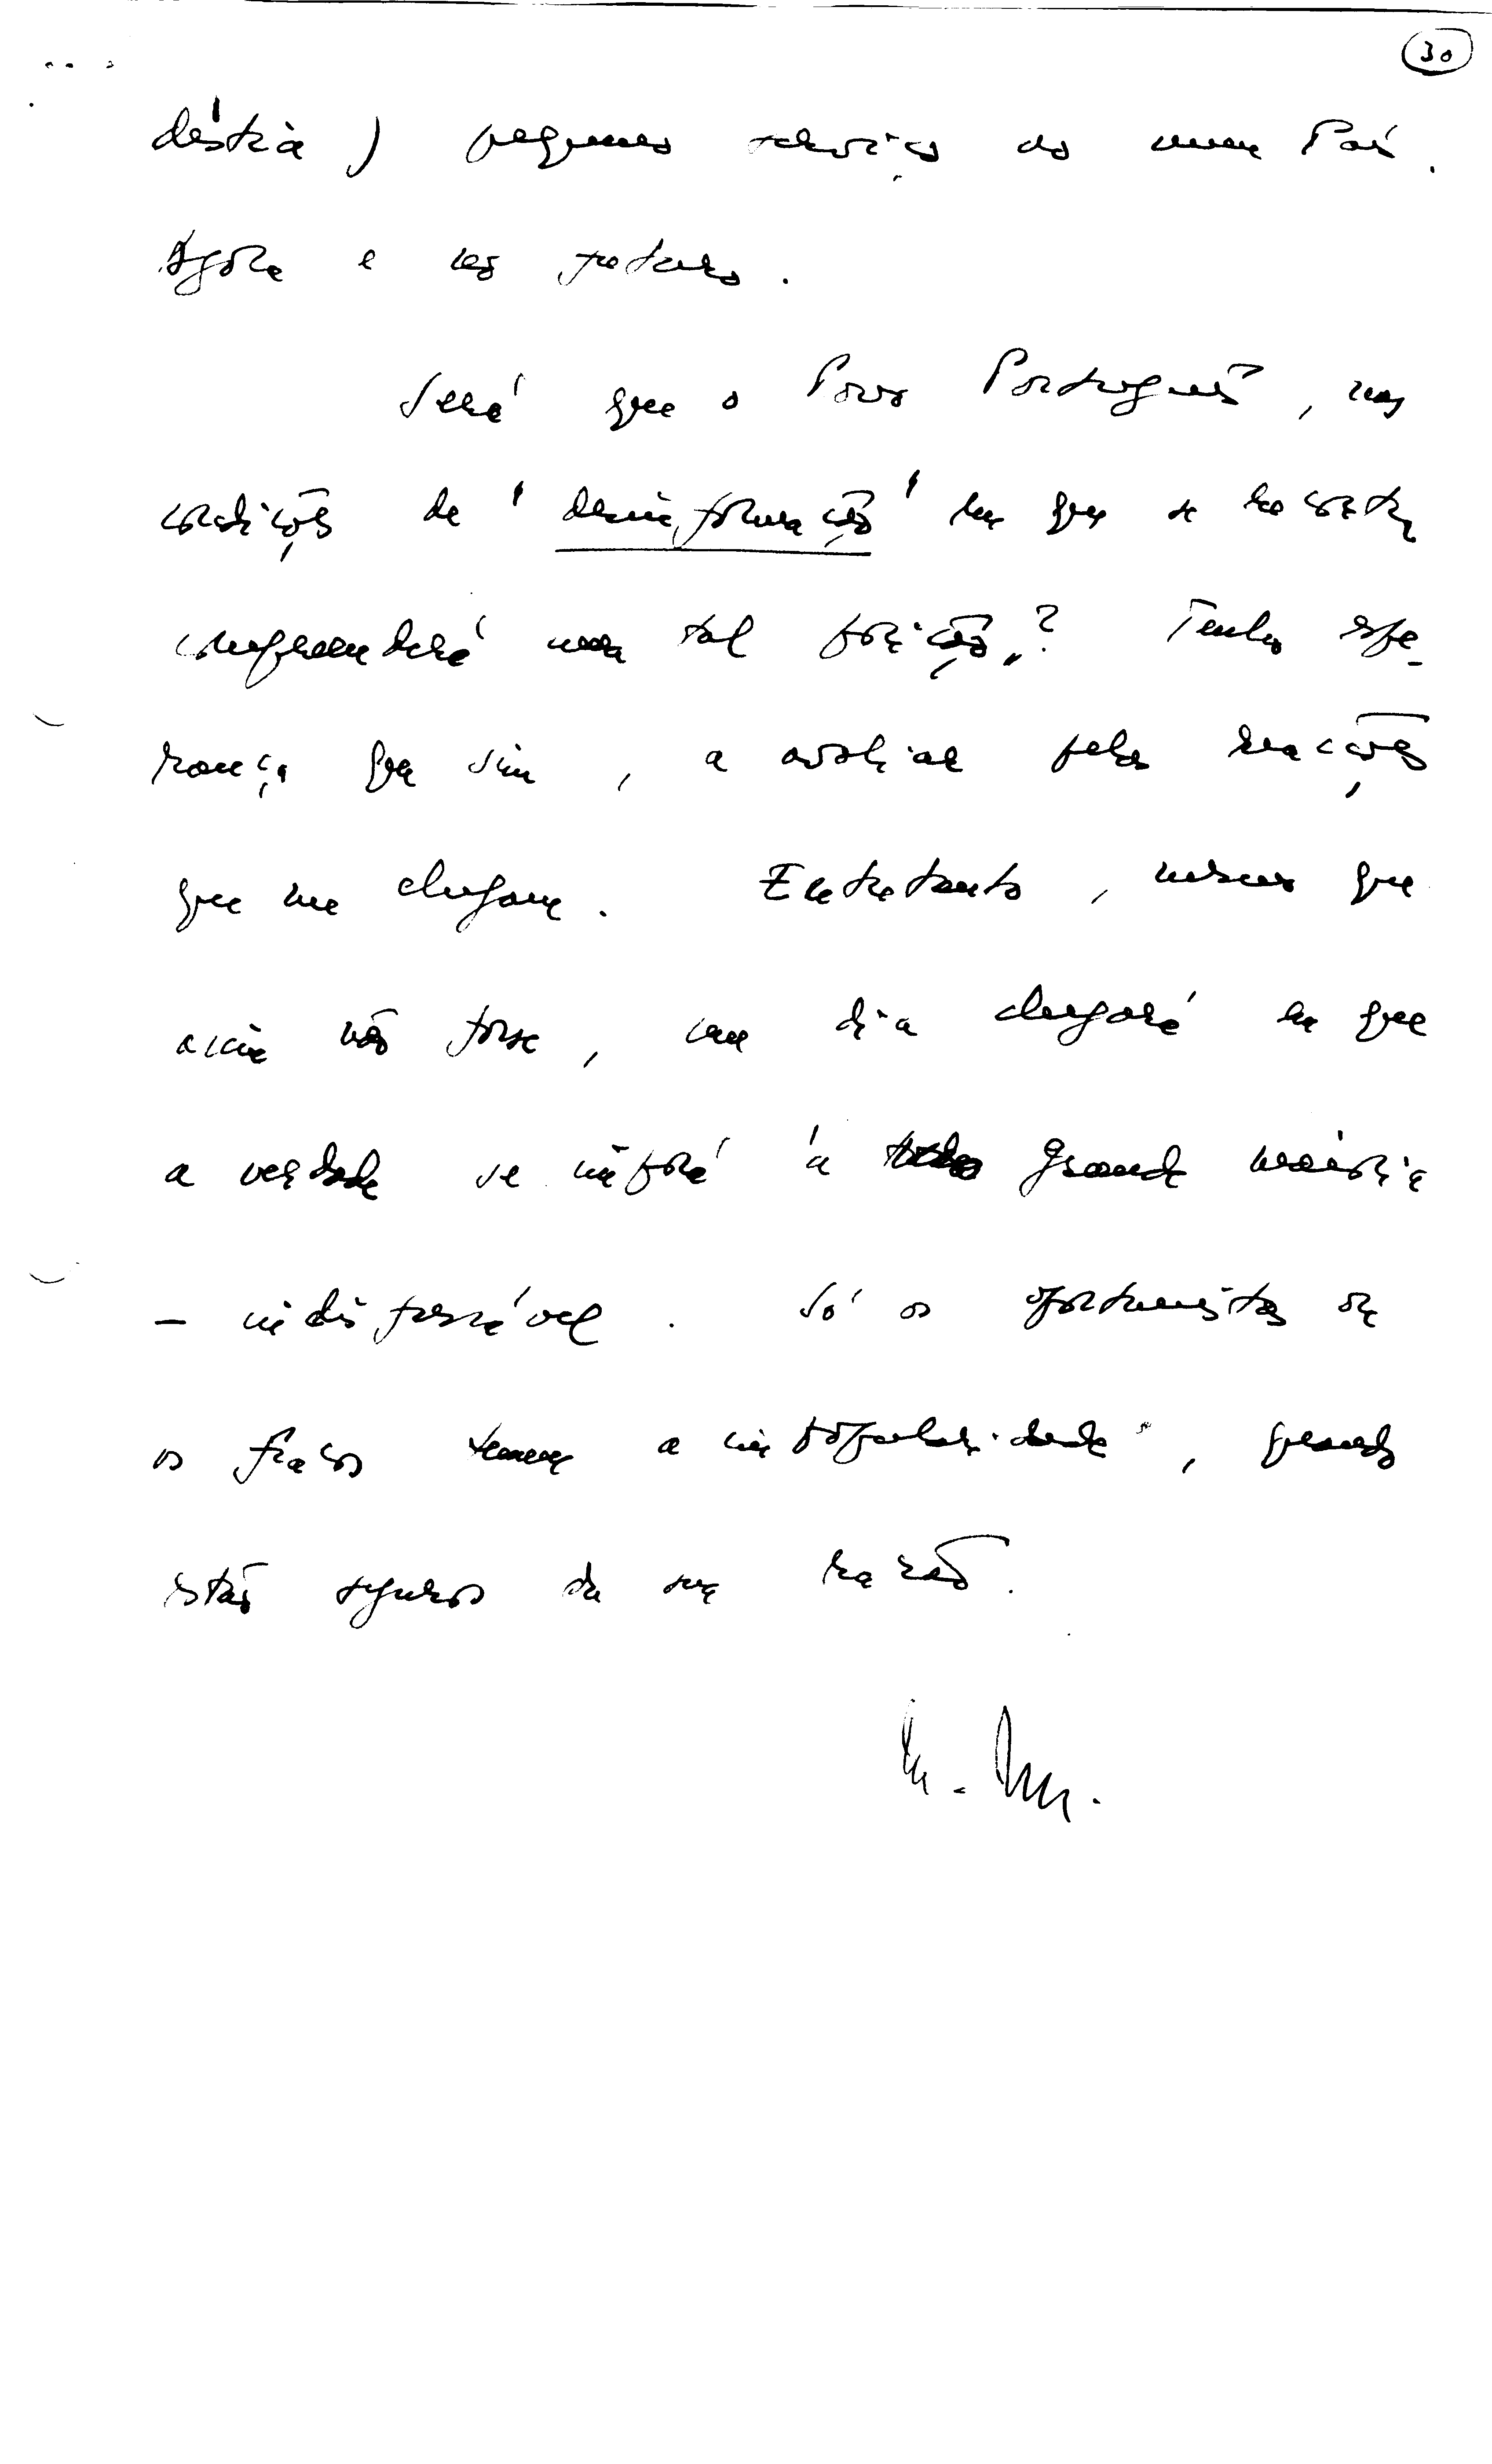 30
déstia) pequenos serviços ao meu País.
Agora e no futuro.
Será que o Povo Português, nas
condições de "desinformação" em que se encontra
compreenderá uma tal posição? Tenho espe-
rança que sim, a avaliar pelas reacções
que me chegam. Entretanto, mesmo que
assim não fosse, um dia chegará em que
a verdade se imporá à grande maioria
- indispensável. Só os oportunistas ou
os fracos temem a impopularidade, quando
estão seguros da sua razão.